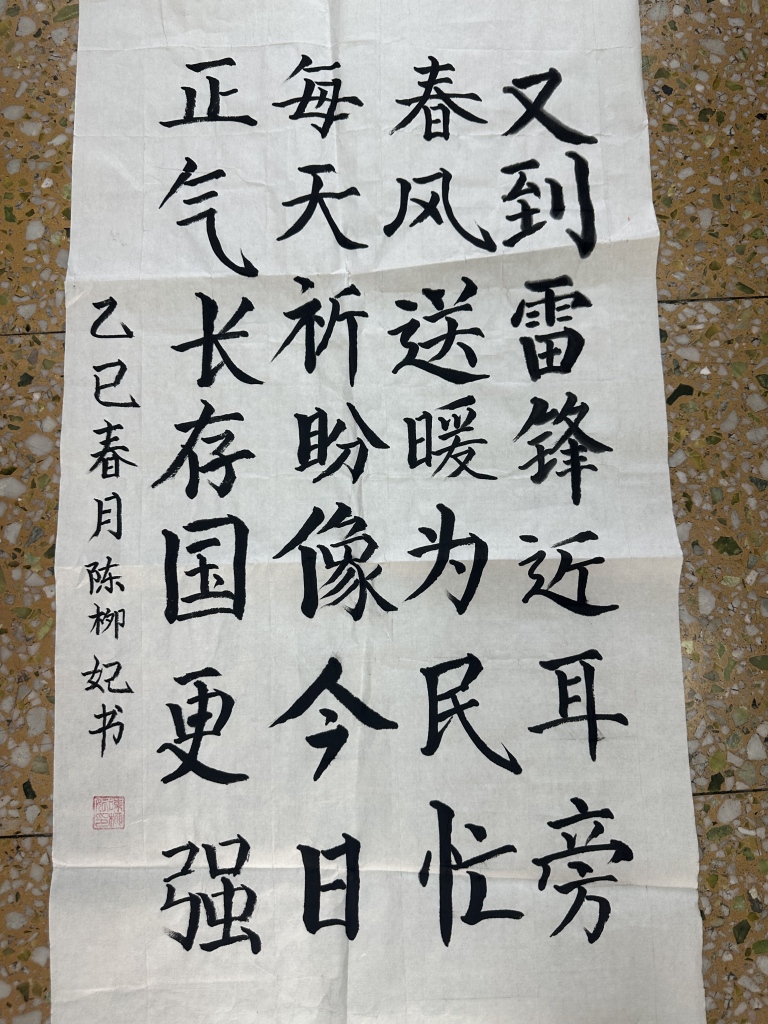 又到雷锋近耳旁
春风送暖为民忙
每天祈盼像今日
正气长存国更强
乙巳春月陈柳妃书